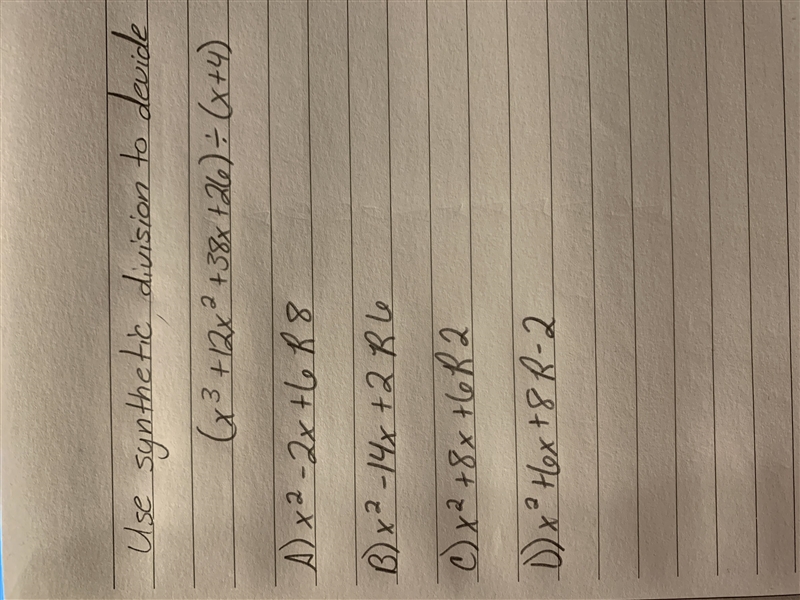 Use synthetic division to devide
(x³ + 12x² + 38x + 26) ÷ (x+4)
A) x² - 2x + 6 R 8
B) x² - 14x + 2 R 6
C) x² + 8x + 6 R 2
D) x² + 6x + 8 R - 2